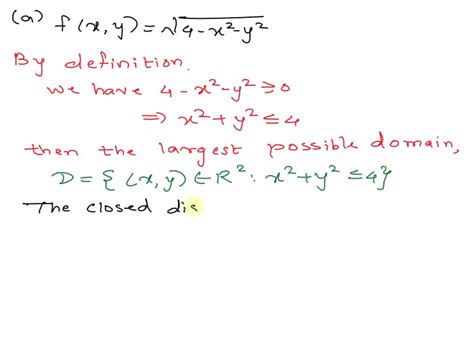 (a) f(x,y) = √4-x²-y²
By definition.
we have 4-x²-y² ≥ 0
⇒ x²+y² ≤ 4
then the largest possible domain,
D = { (x,y) ∈ R² : x²+y² ≤ 4}
The closed dis